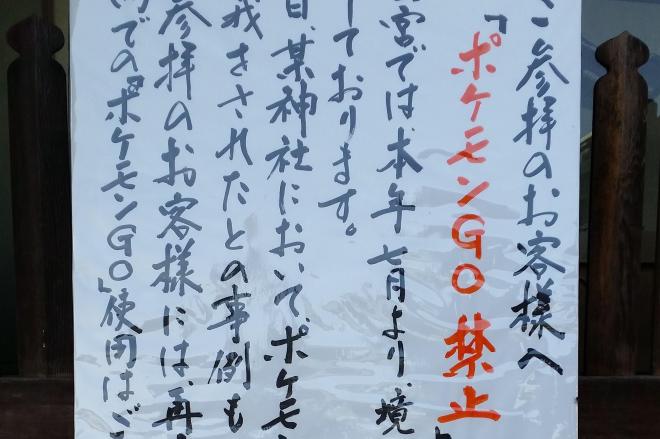 ご参拝のお客様へ
「ポケモンGO禁止」
宮では、本年七月より、境
しております。
日、某神社において、ポケモン
我をされたとの事例も
参拝のお客様には、再
内での『ポケモンGO』使用はご